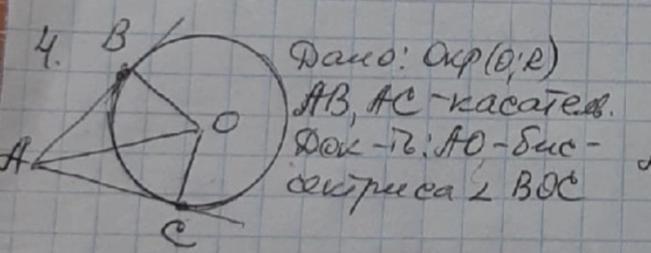 4.
B
A
O
C
Дано: Окр(O;R)
AB, AC - касател.
Док-ть: AO - бис-
сектриса ∠ BOC